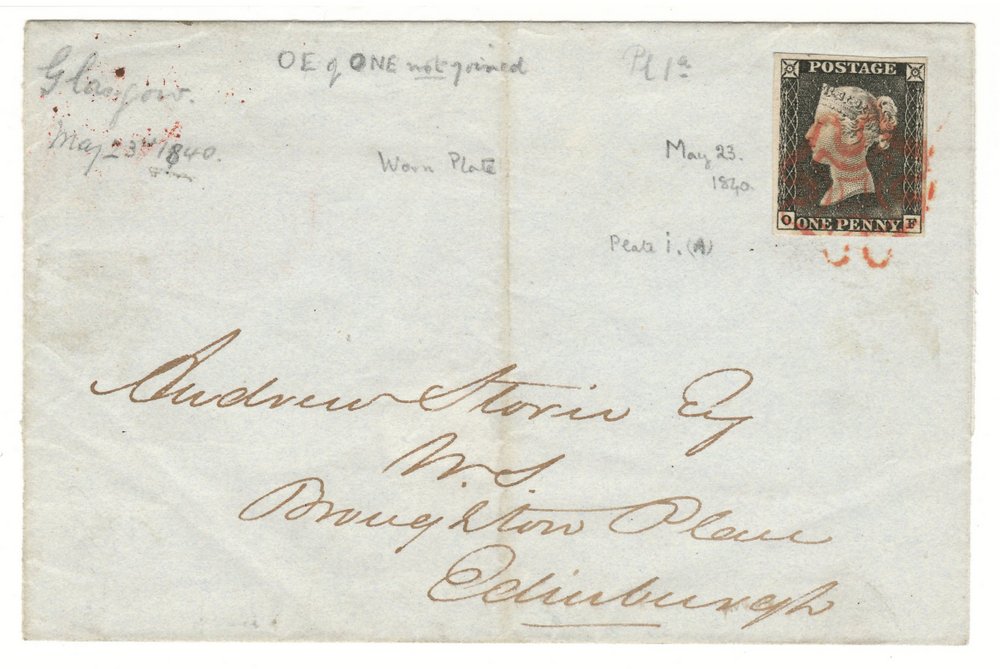 Glasgow.
May 23rd 1840.
OE of ONE not joined
Pl 1a
Worn Plate
May 23.
1840.
Plate i. (A)
POSTAGE
O ONE PENNY F
Andrew Storie Esq
W.S.
Broughton Place
Edinburgh